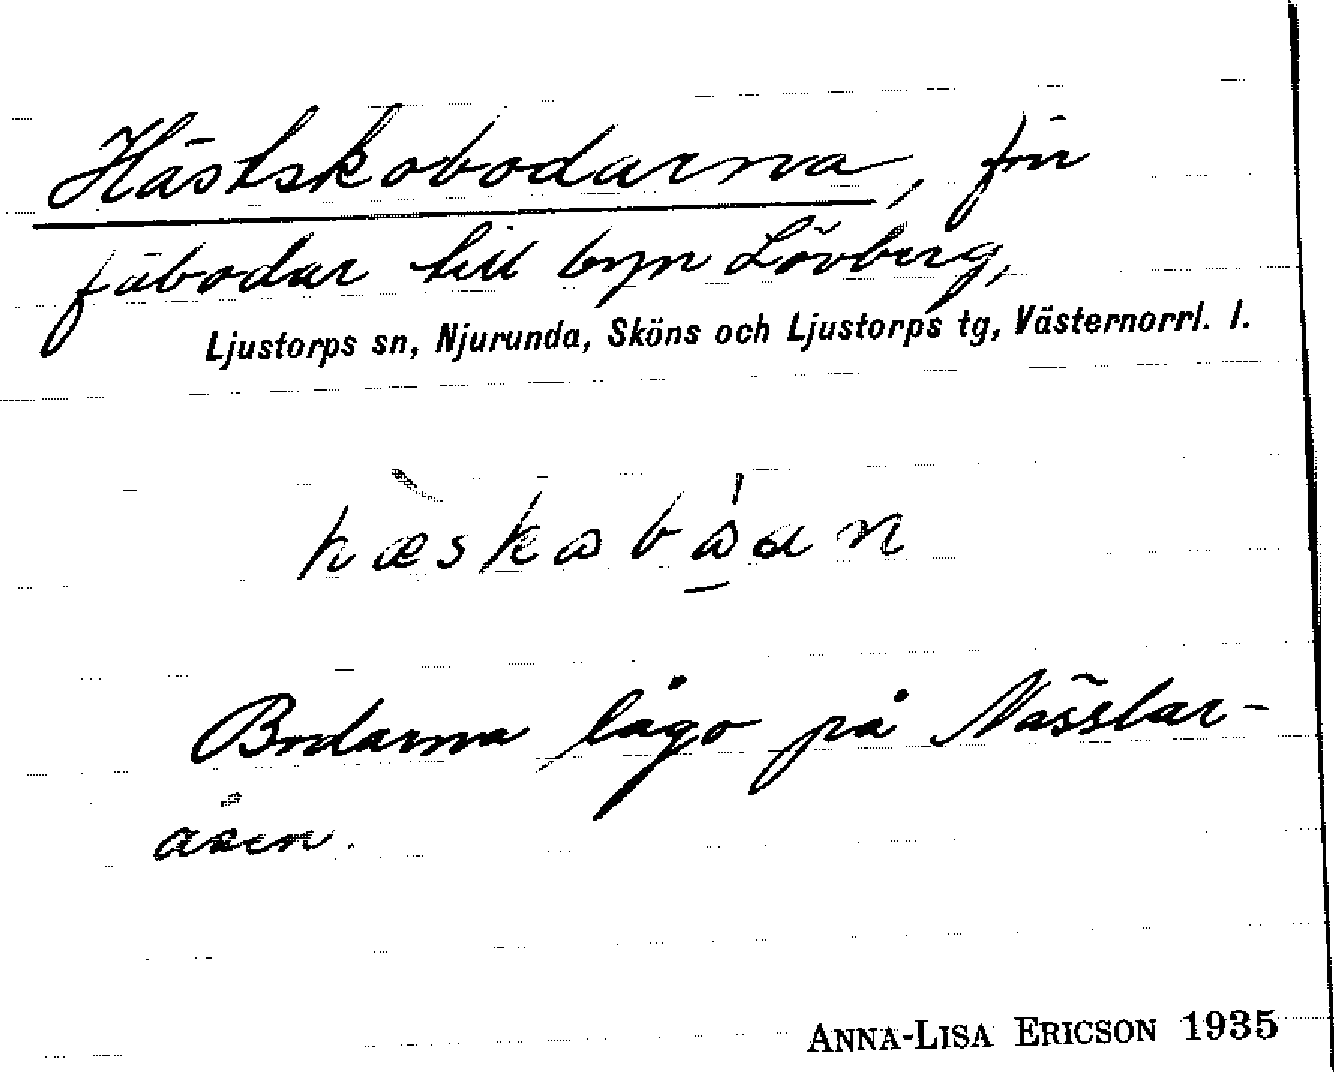 Hästskobodarna, för
fäbodar till byn Lövberg,
Ljustorps sn, Njurunda, Sköns och Ljustorps tg, Västernorrl. l.
Bodarna lågo på Nässlar-
åsen.
ANNA-LISA ERICSON 1935